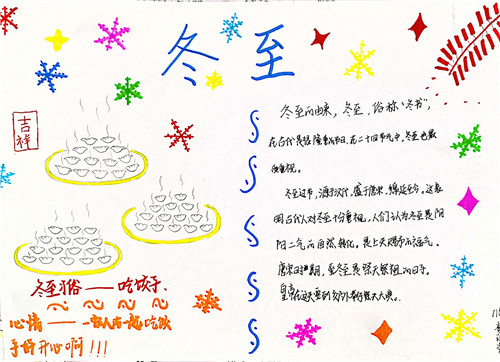 冬至
吉祥
冬至的由来，冬至，俗称"冬节"，
在古代是很隆重的节日，在二十四节气中，冬至也最
受重视。
冬至过节，源于汉代，盛于唐宋，绵延至今。这表
明古代人对冬至十分重视，人们认为冬至是阴
阳二气的自然转化，是上天赐予的福气。
唐宋时期，至冬至是祭天祭祖的日子。
皇帝在这天要到郊外举行祭天大典。
冬至习俗——吃饺子、
心情——家人在一起吃饺
子好开心啊!!!